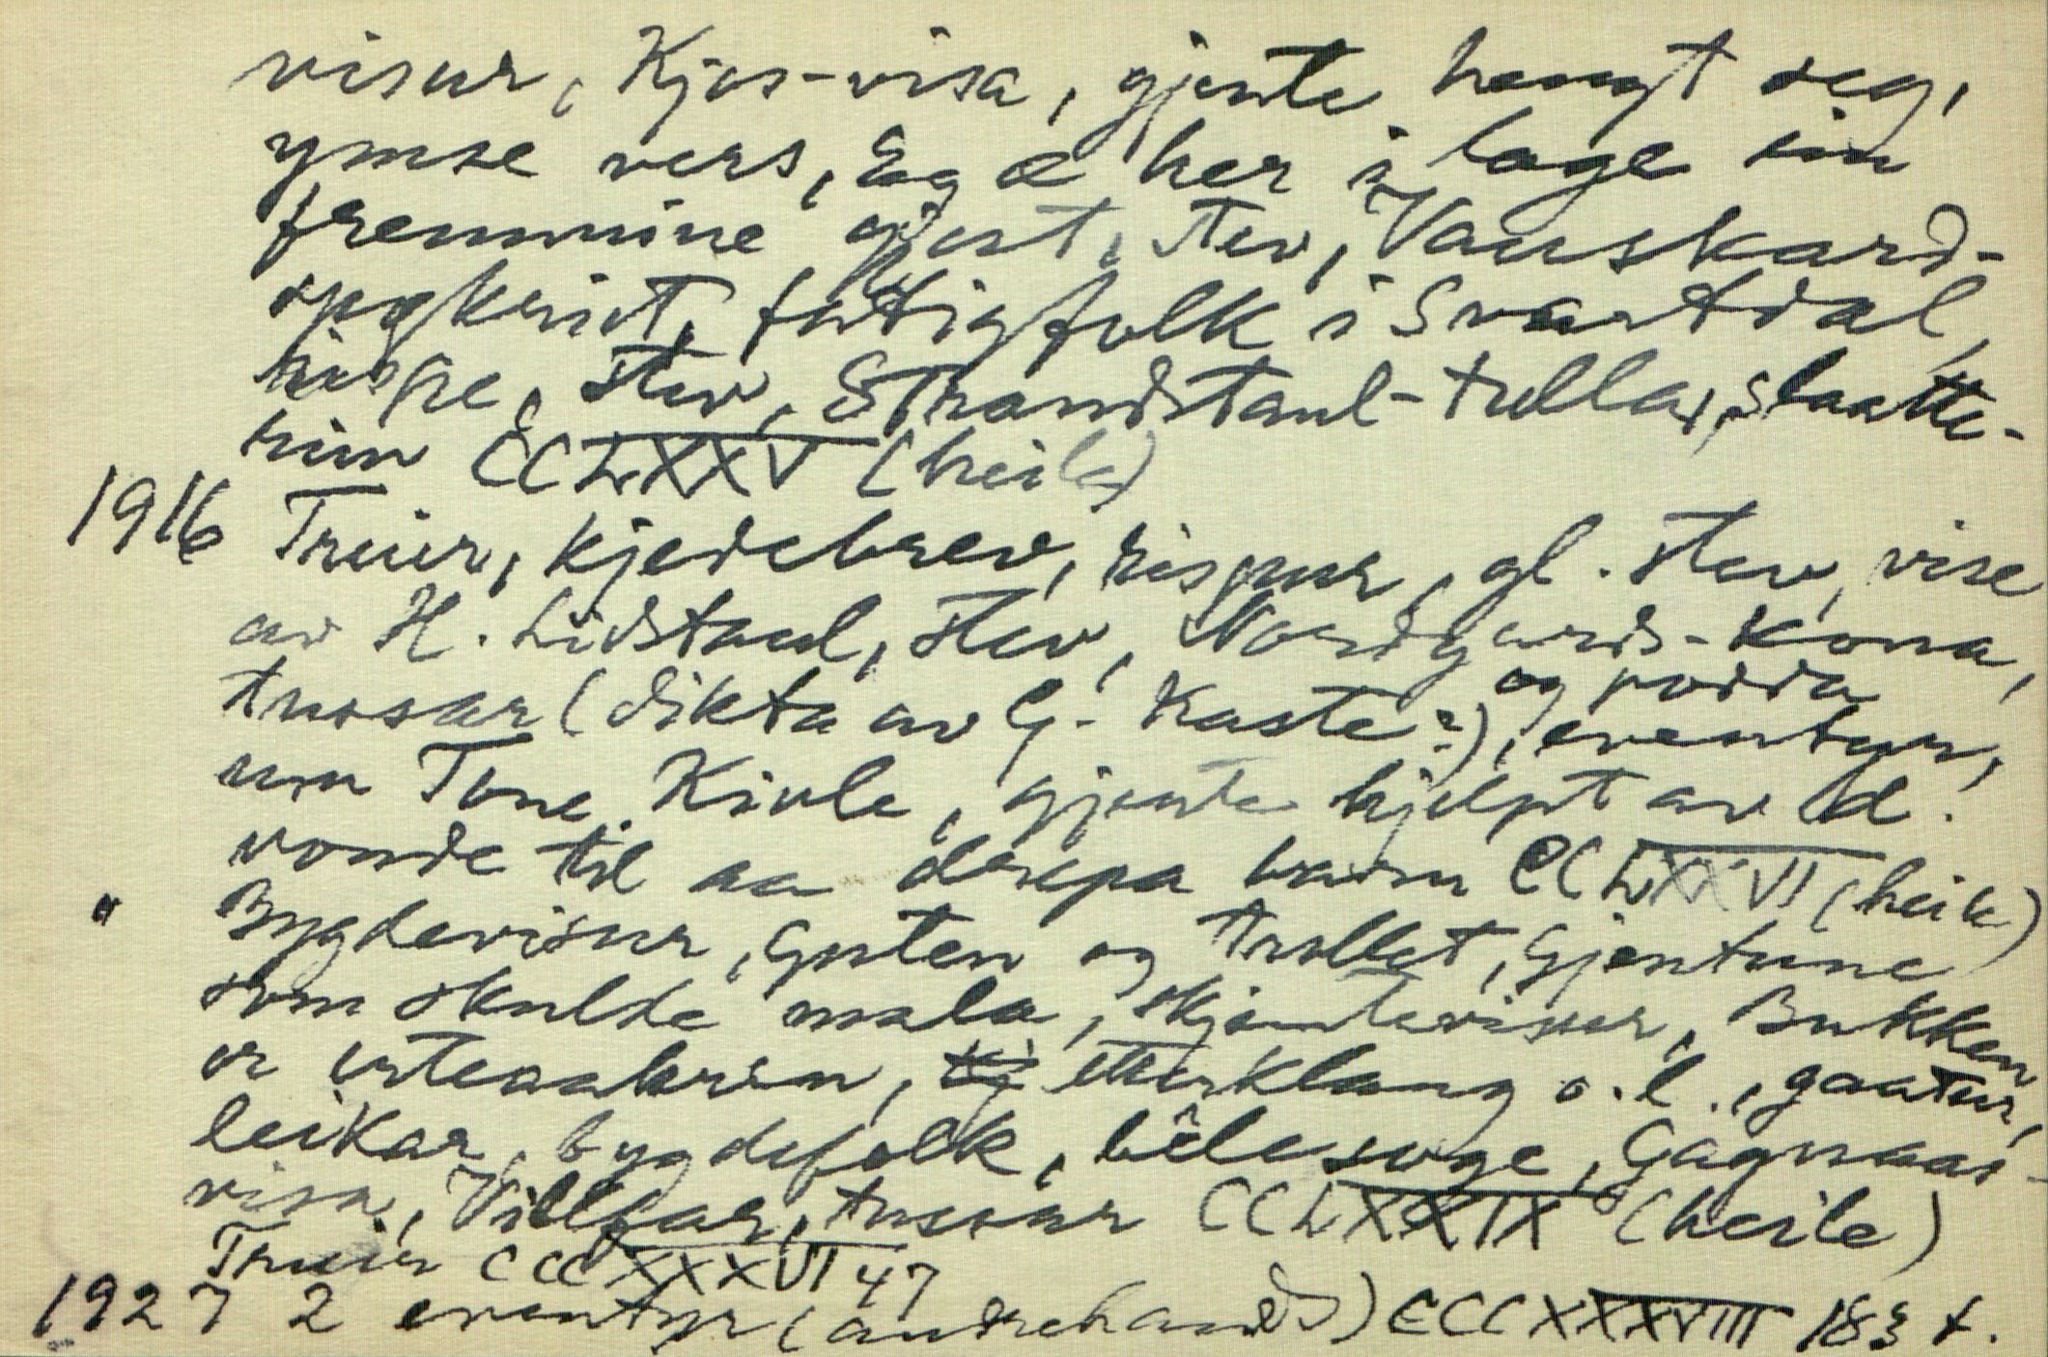 visur, Kjos-visa, gjente hengt seg,
ymse vers, Eg æ her i lage ein
fremmine gjest, stev, Vauskard-
spøkeriet, fattigfolk i Svartdal,
rispe, stev, Strandstaul-tulla, slaatte-
rim CCLXXV (heile)
1916 Truer, kjedebrev, rispur, gl. stev, vise
av H. Lidstaul, stev, Nordgards-kona,
og podda
tussar (dikta av G. Kaste?), eventyr,
um Tone Kivle, gjente hjelpt av d.
vonde til aa drepa barn CCLXXVI (heile)
" Bygdevisur, Guten og trollet, Gjentune
som skulde mala, skjemtevisur, Bukken
or erteaakren, etterklang o.l., gaatur,
leikar, bygdefolk, bêlesoge, Gagnaas-
visa, Villfar, tussar CCLXXIX (heile)
Truer CCCXXXVI 47
1927 2 eventyr (andrehands) CCCXXXVIII 183 f.